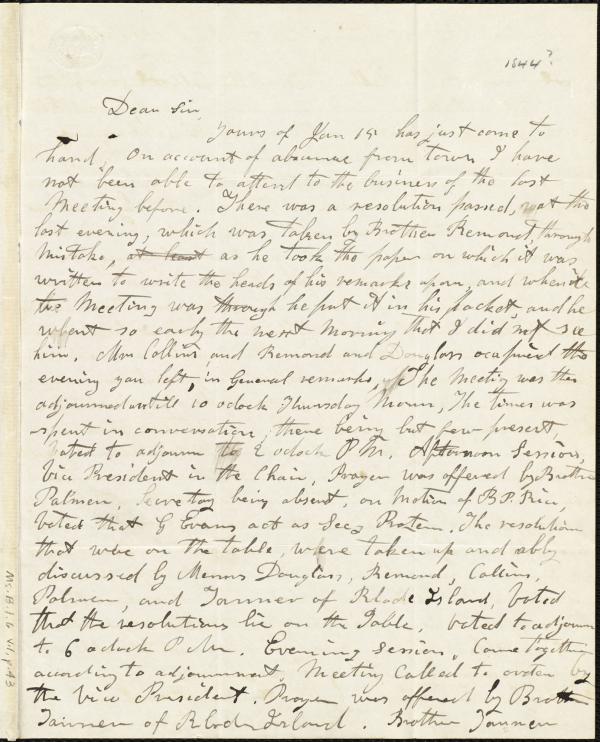 1844?
Dear Sir,
Yours of Jan 15 has just come to
hand, On account of absence from town I have
not been able to attent to the business of the last
Meeting before. There was a resolution passed, at the
last evening, which was taken by Brother Remond, through
Mistake, at least as he took the paper on which it was
written to write the heads of his remarks upon, and when
the Meeting was through he put it in his pocket, and he
went so early the next morning that I did not see
him. Mrs Collins, and Remond and Douglass ocapied the
evening you left, in General remarks, The Meeting was then
adjourned untill 10 oclock Thursday Morn, The times was
spent in conversation, there being but few present,
Voted to adjourn to 2 oclock P M. Afternoon Session,
Vice President in the Chair, Prayer was offered by Brother
Palmer, Secretay being absent, on Motion of B P. Rice,
Voted that G Evans act as Secy Protem, The resolution
that wore on the table, where taken up and ably
discussed by Messrs Douglass, Remond, Collins,
Palmer, and Tanner of Rhode Island, Voted
that the resolutions lie on the Table. Voted to adjourn
to 6 oclock P M. Evening Session, Come together
according to adjournment, Meeting Called to order by
the Vice President. Prayer was offered by Brother
Tanner of Rhode Island. Brother Tanner
Ms.B.1.6 v.1, p.43